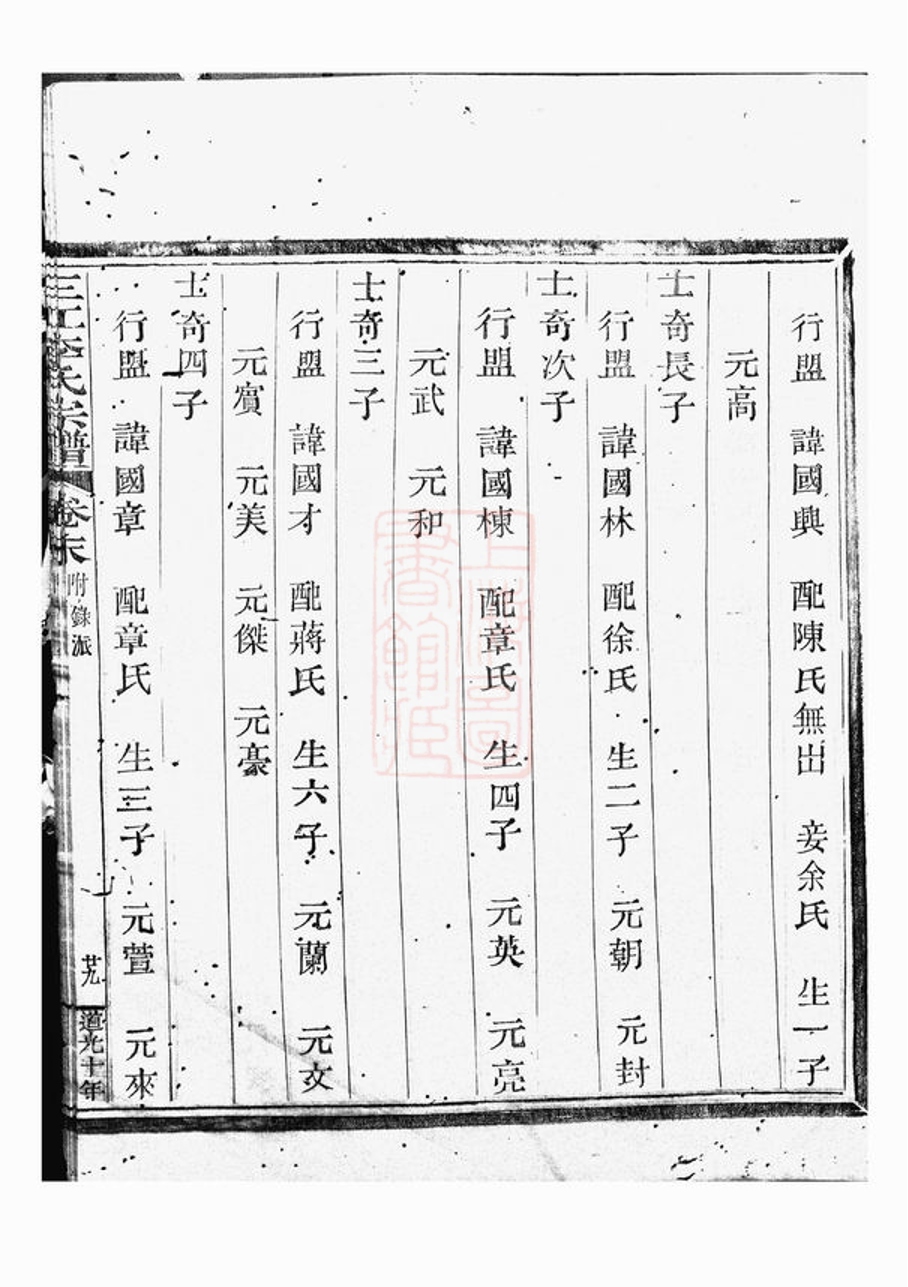 行盟　諱國興　配陳氏無出　妾余氏　生一子
元高
士奇長子
行盟　諱國林　配徐氏　生二子　元朝　元封
士奇次子
行盟　諱國棟　配章氏　生四子　元英　元亮
元武　元和
士奇三子
行盟　諱國才　配蔣氏　生六子　元蘭　元文
元賓　元美　元傑　元豪
士奇四子
行盟　諱國章　配章氏　生三子　元萱　元來
三江李氏宗譜　卷末　附錄派　廿九　道光十年
上海圖書館藏